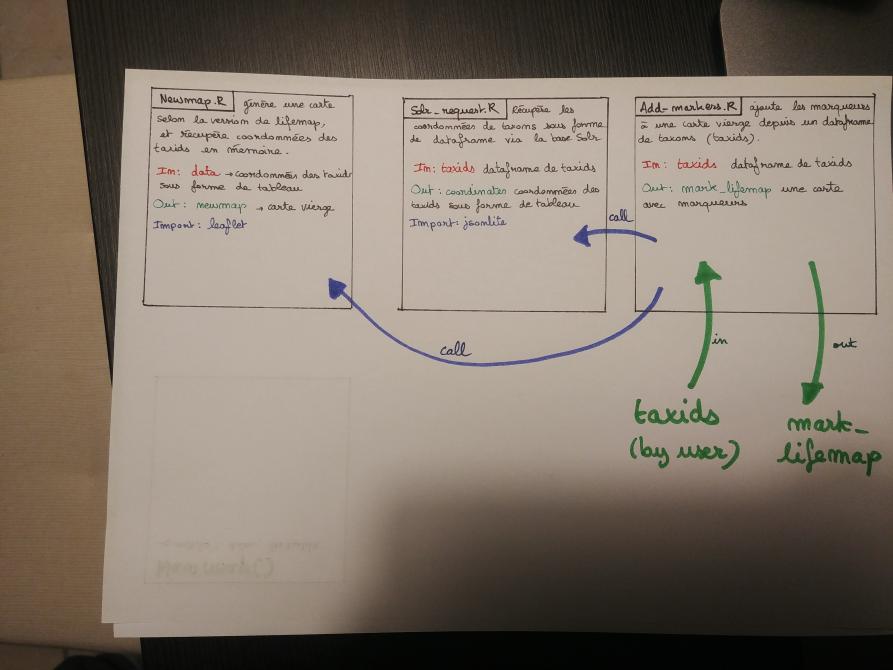 Newmap.R génère une carte
selon la version de lifemap,
et récupère coordonnées des
taxids en mémoire.
In: data → coordonnées des taxids
sous forme de tableau
Out: newmap → carte vierge
Import: leaflet
Solr_request.R Récupère les
coordonnées de taxons sous forme
de dataframe via la base Solr
In: taxids dataframe de taxids
Out: coordinates coordonnées des
taxids sous forme de tableau
Import: jsonlite
Add_markers.R ajoute les marqueurs
à une carte vierge depuis un dataframe
de taxons (taxids).
In: taxids dataframe de taxids
Out: mark_lifemap une carte
avec marqueurs
call
call
in
out
taxids
(by user)
mark_
lifemap